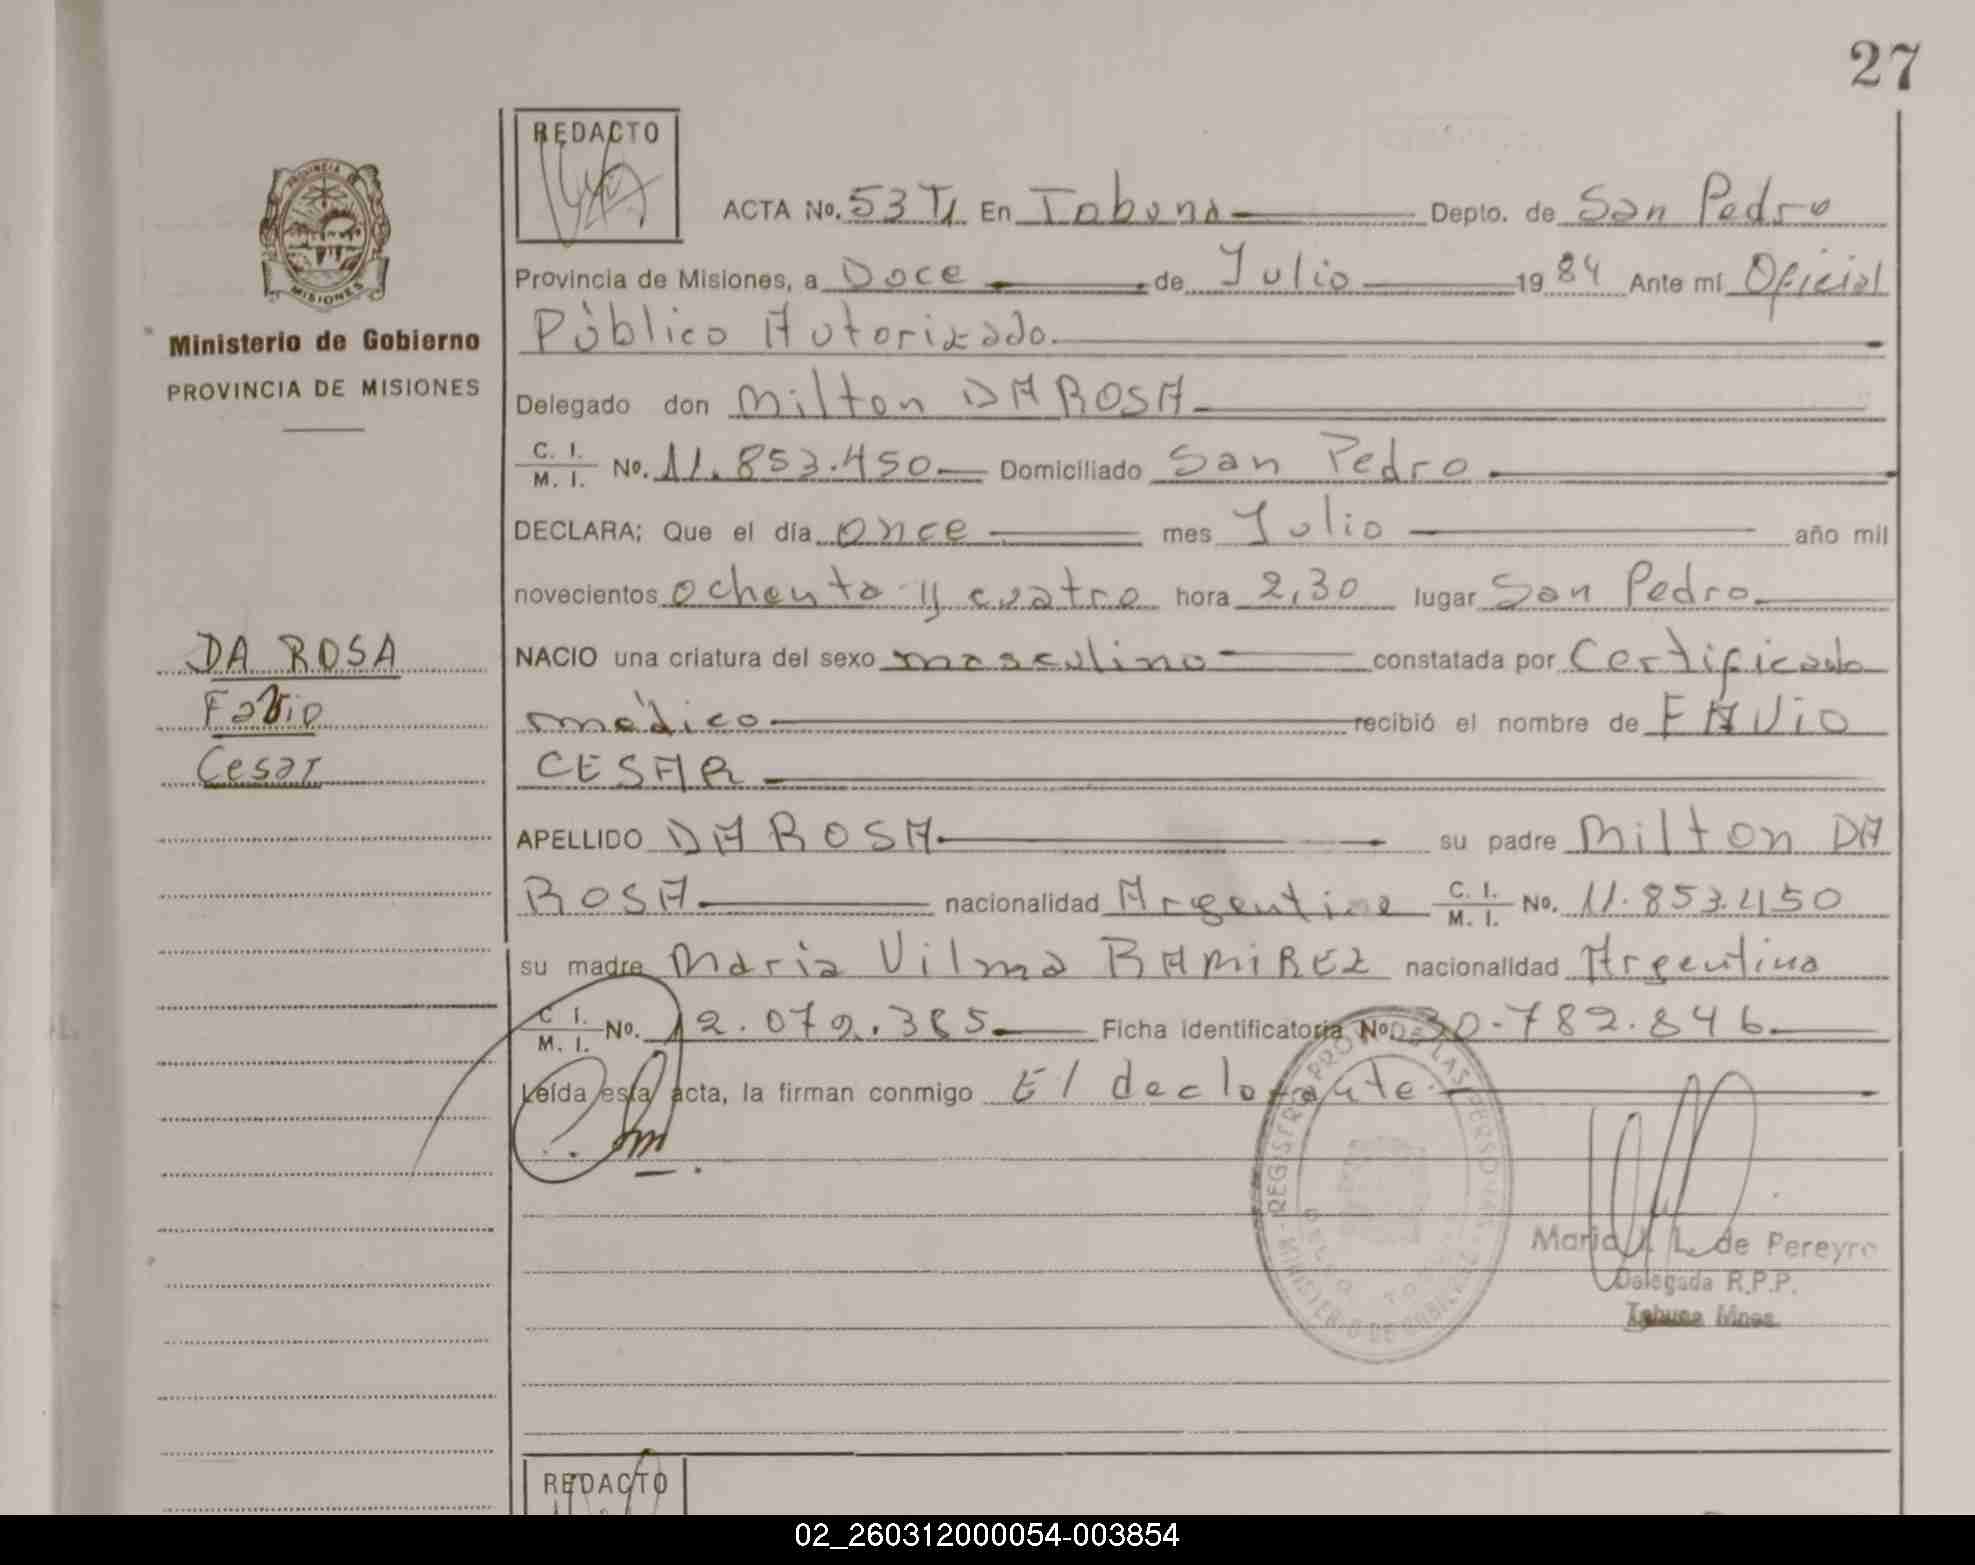 27
REDACTO
ACTA No. 53 T1 En Tobuna Depto. de San Pedro
Provincia de Misiones, a Doce de Julio 1984 Ante mí Oficial
Público Autorizado.
Ministerio de Gobierno
PROVINCIA DE MISIONES
Delegado don Milton DA ROSA
C. I. / M. I. No. 11.853.450 Domiciliado San Pedro
DECLARA; Que el día once mes Julio año mil
novecientos ochenta y cuatro hora 2,30 lugar San Pedro
DA ROSA
NACIO una criatura del sexo masculino constatada por Certificado
Favio
médico recibió el nombre de FAVIO
Cesar
CESAR
APELLIDO DA ROSA su padre Milton DA
ROSA nacionalidad Argentina C. I. / M. I. No. 11.853.450
su madre Maria Vilma RAMIREZ nacionalidad Argentina
C. I. / M. I. No. 12.072.385 Ficha identificatoria No. 30.782.846
Leída esta acta, la firman conmigo El declarante.
REGISTRO PROV. DE LAS PERSONAS
MINISTERIO DE GOBIERNO
Maria L. de Pereyra
Delegada R.P.P.
Tobuna Mnes.
REDACTO
02_260312000054-003854